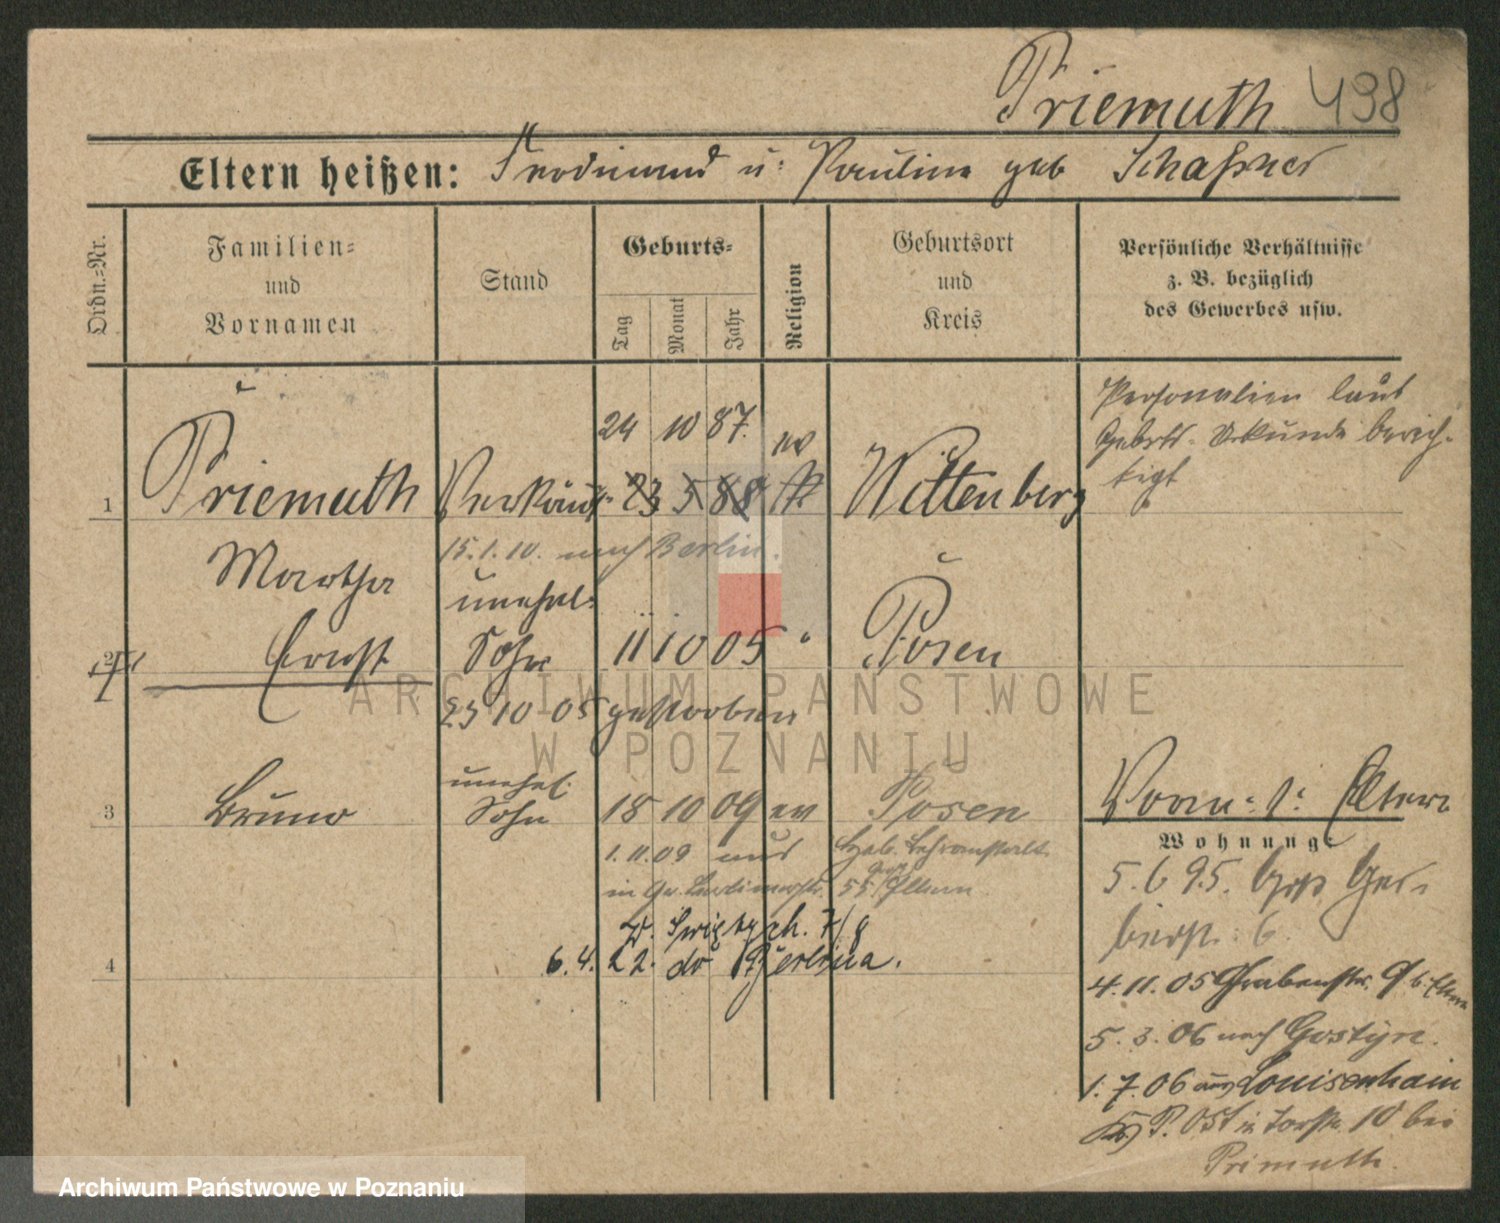 Priemuth 498
Eltern heißen: Ferdinand u: Pauline geb Schaffner
Ordn.=Nr.
Familien=
und
Vornamen
Stand
Geburts=
Tag
Monat
Jahr
Religion
Geburtsort
und
Kreis
Persönliche Verhältnisse
z. B. bezüglich
des Gewerbes usw.
Personalien laut
Geburts-Urkunde berich-
tigt
24 10 87. ev
1 Priemuth Verkäuf. 23 5 88 Wittenberg
15.1.10. nach Berlin.
Martha unehel.
2 Ernst Sohn 11 10 05 " Posen
23 10 05 gestorben
unehel.
3 Bruno Sohn 18 10 09 ev Posen
1.11.09 aus Heb. Lehranstalt
in Gr. 55 Eltern
Św. 7/8
4 6.4.22. do Berlina.
Vorm. s: Eltern
Wohnung:
5.6 95. Groß Ger-
berstr. 6
4.11.05 Grabenstr. 9 b. Eltern
5.3.06 nach Gostyn.
1.7.06 aus Louisenhain
Kr P. Ost in Torstr. 10 bei
Primuth.
ARCHIWUM PAŃSTWOWE
W POZNANIU
Archiwum Państwowe w Poznaniu